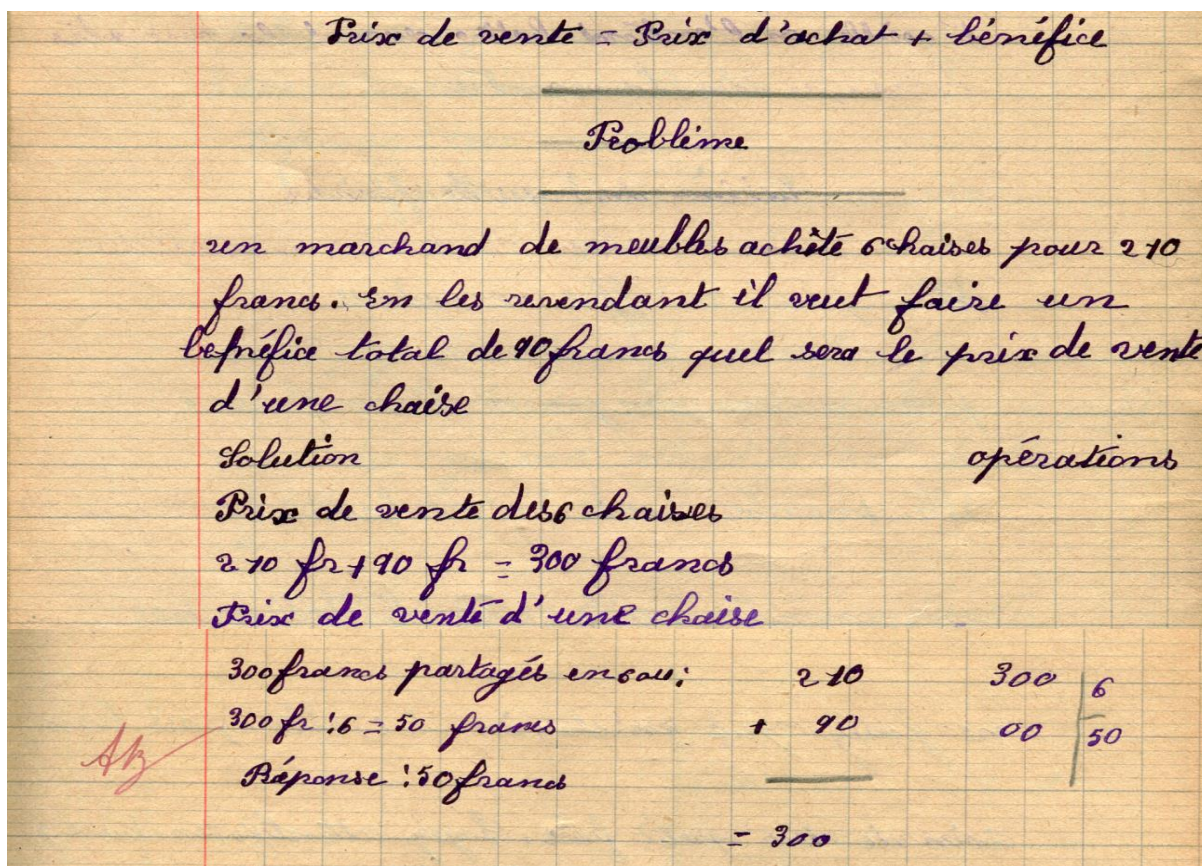 Prix de vente = Prix d'achat + bénéfice
Problème
un marchand de meubles achète 6 chaises pour 210
francs. En les revendant il veut faire un
bénéfice total de 90 francs quel sera le prix de vente
d'une chaise
Solution opérations
Prix de vente des 6 chaises
210 fr + 90 fr = 300 francs
Prix de vente d'une chaise
300 francs partagés en 6 ou : 210 300 6
300 fr : 6 = 50 francs + 90 00 50
Réponse : 50 francs
= 300